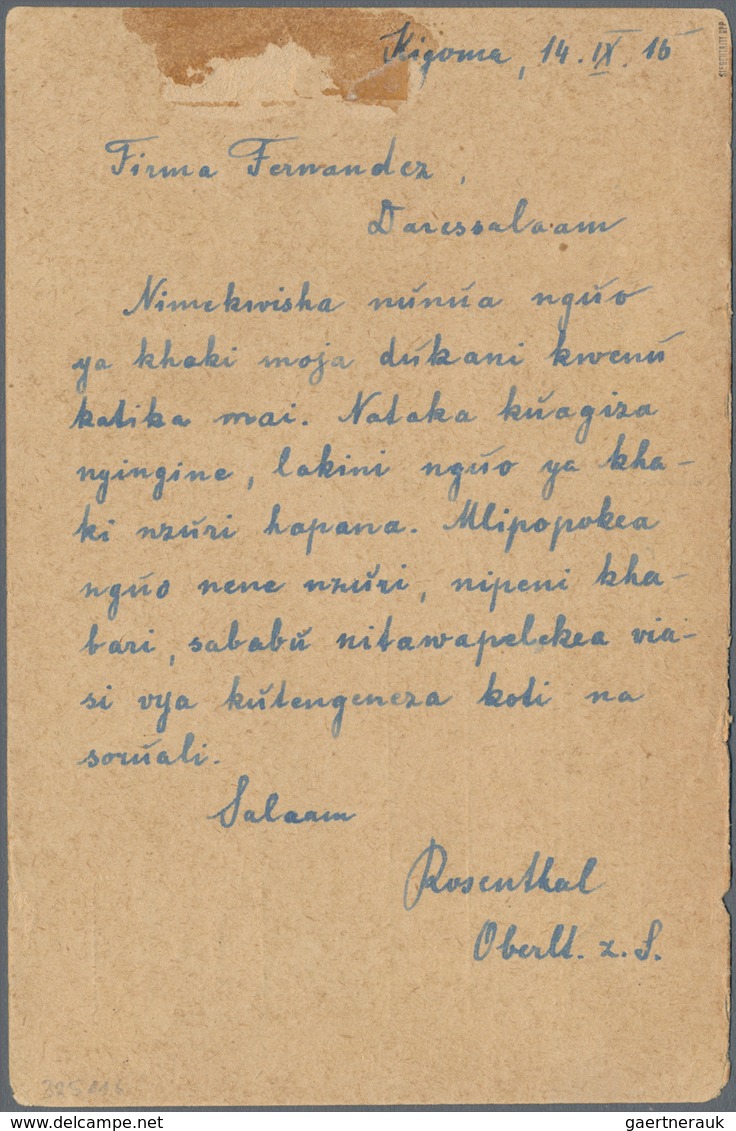 Kigoma, 14. IX. 15
Firma Fernandez,
Daressalaam
Nimekwisha nunua nguo
ya khaki moja dukani kwenu
katika mai. Nataka kuagiza
nyingine, lakini nguo ya kha-
ki nzuri hapana. Mlipopokea
nguo nene nzuri, nipeni kha-
bari, sababu nitawapelekea via-
si vya kutengeneza koti na
soruali.
Salaam
Rosenthal
Oberlt. z. S.
gaertnerauk